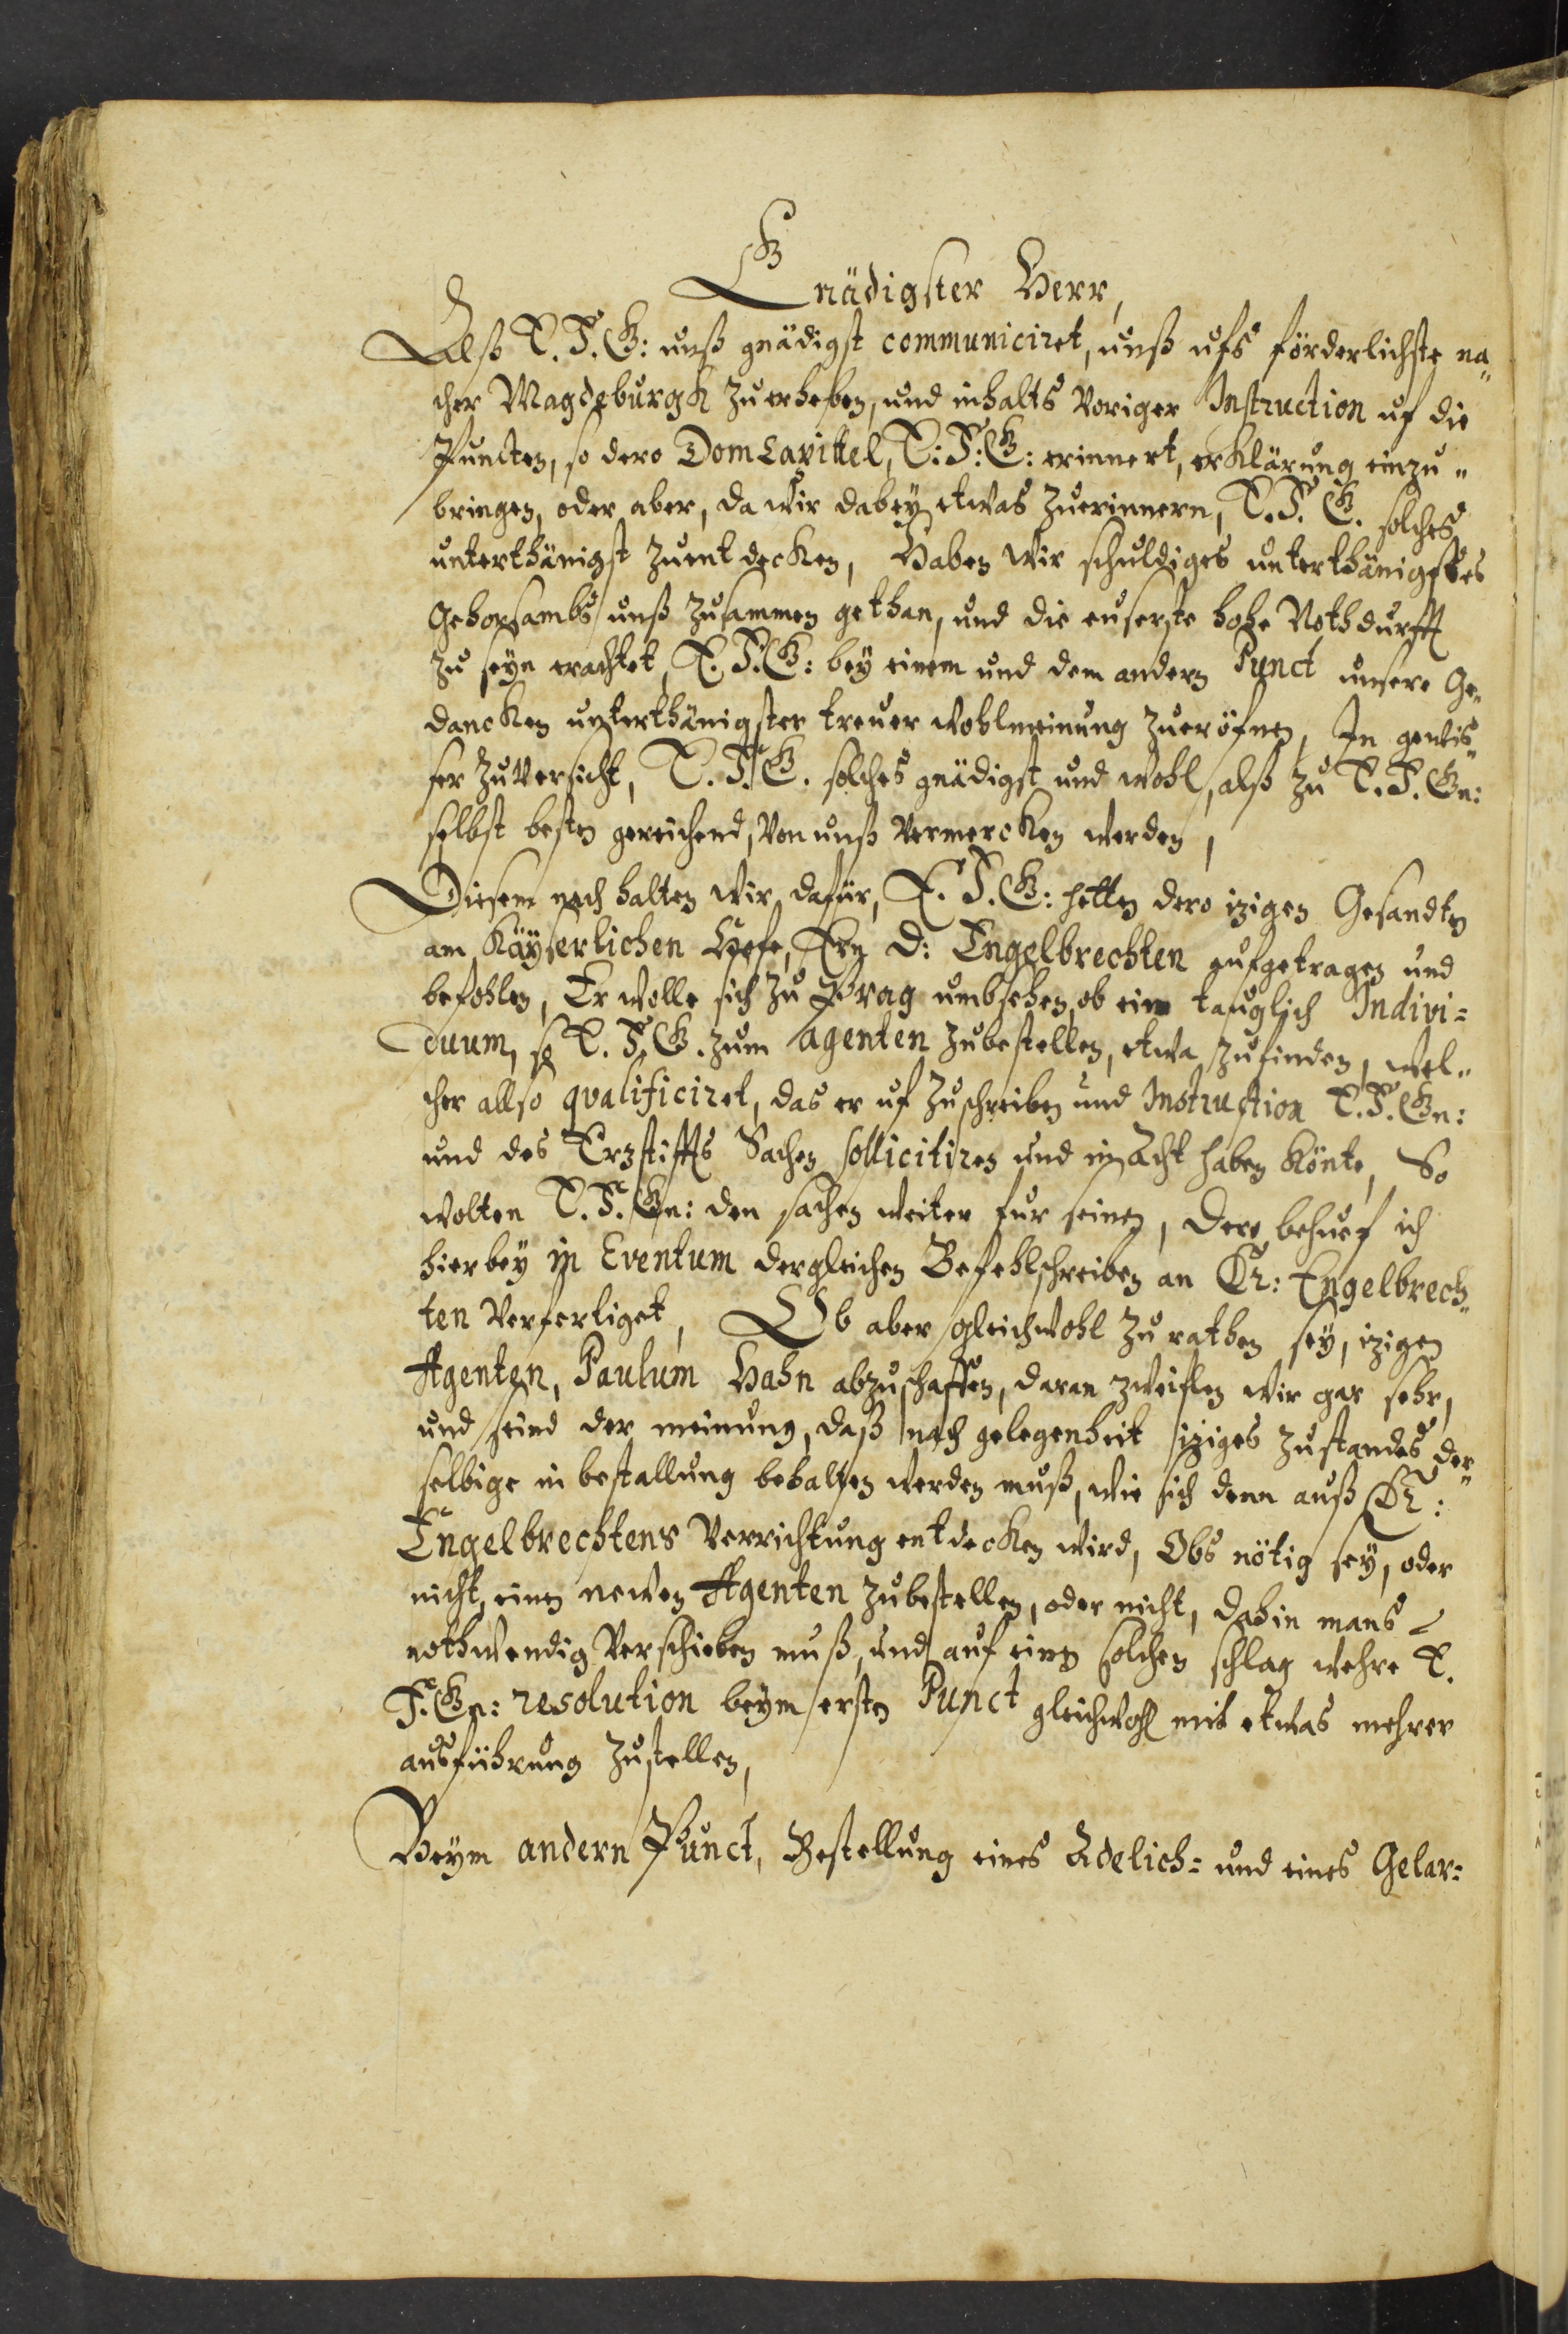 Gnädigster Herr,
Alß E. F. G: unß gnädigst communiciret, unß ufs förderlichste na„
cher Magdeburgk zuerheben, und inhalts voriger Instruction uf die
Puncten, so dero DomCapittel, E: F: G: erinnert, erklärung einzu„
bringen, oder aber, da wir dabey etwas zuerinnern, E. F. G. solches
unterthänigst zuentdecken, Haben wir schuldiges unterthänigstes
gehorsambs unß zusammen gethan, und die euserste hohe Nothdurfft
zu seyn erachtet, E. F. G: bey einem und dem andern Punct unsere Ge„
dancken unterthänigster treuer wohlmeinung zueröfnen, In gewis„
ser zuversicht, E. F. G. solches gnädigst und wohl, alß zu E. F. Gn:
selbst besten gereichend, von unß vermercken werden,
Diesem nach halten wir dafür, E. F. G: hetten dero izigen Gesandten
am Käyserlichen Hofe, Ern D: Engelbrechten aufgetragen und
befohlen, Er wolle sich zu Prag umbsehen, ob ein tauglich Indivi=
duum, so E. F. G. zum Agenten zubestellen, etwa zufinden, wel„
cher allso qvalificiret, das er uf zuschreiben und Instruction E. F. Gn:
und des Erzstiffts Sachen sollicitiren und in acht haben könte, So
wolten E. F. Gn: den sachen weiter fur seinen, Dero behuef ich
hierbey in Eventum dergleichen Befehlschreiben an Dr: Engelbrech„
ten verfertiget, Ob aber gleichwohl zu rathen sey, izigen
Agenten, Paulum Hahn abzuschaffen, daran zweiflen wir gar sehr,
und seind der meinung, daß nach gelegenheit iziges zustandes der„
selbige in bestallung behalten werden muß, wie sich denn auß Dr:
Engelbrechtens Verrichtung entdecken wird, Obs nötig sey, oder
nicht, einen newen Agenten zubestellen, oder nicht, dahin mans
nothwendig verschieben muß, und auf einen solchen schlag wehre E.
F. Gn: resolution beym ersten Punct gleichwohl mit etwas mehrer
ausführung zustellen,
Beym andern Punct, Bestellung eines Adelich= und eines Gelar=